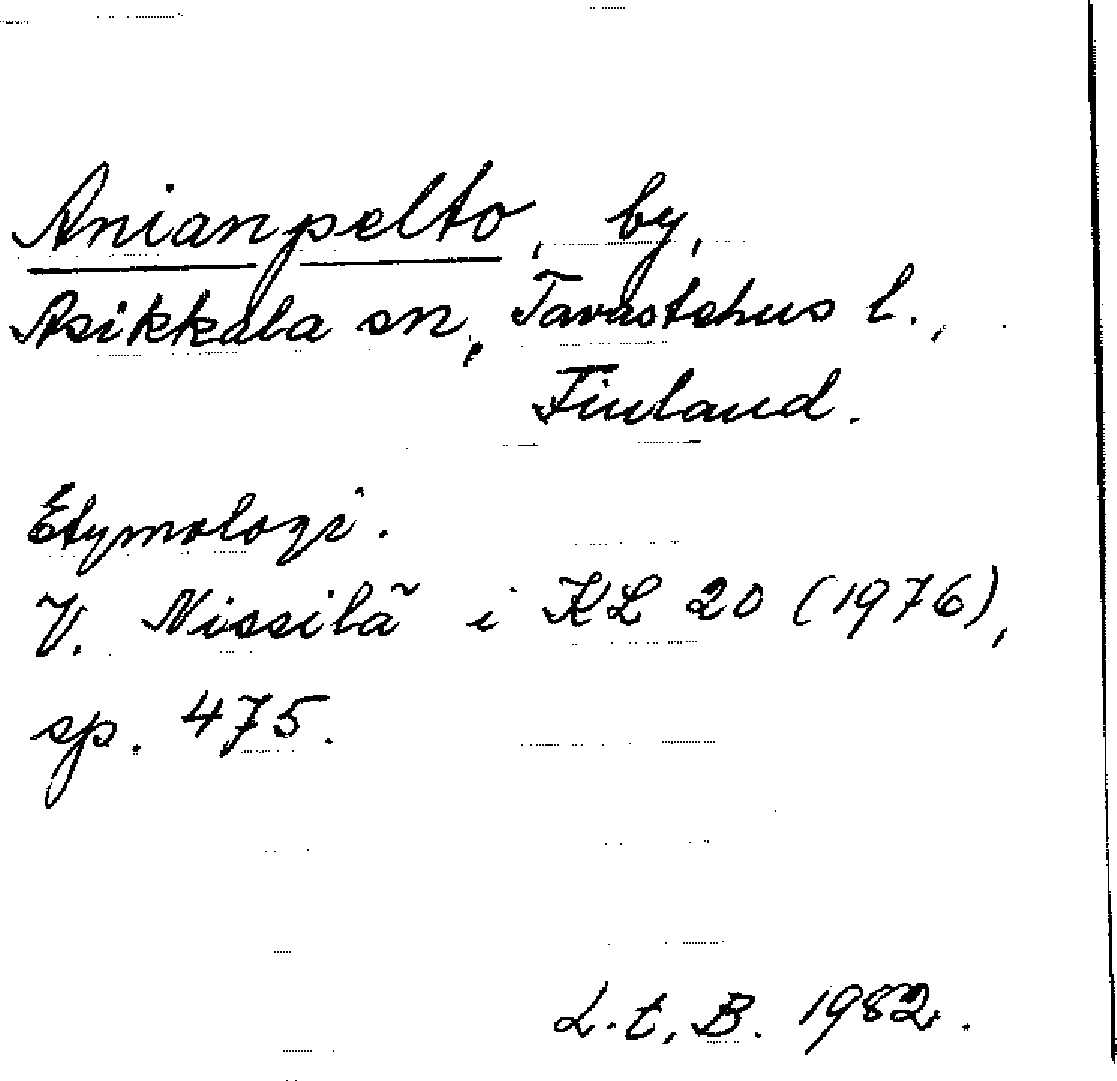 Anianpelto, by,
Asikkala sn, Tavastehus l.,
Finland.
Etymologi.
V. Nissilä i KL 20 (1976),
sp. 475.
L.t. B. 1982.